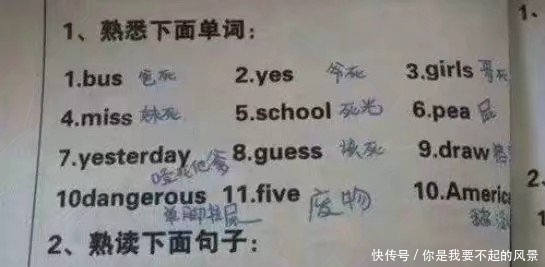 1、熟悉下面单词：
1.bus 爸死 2.yes 爷死 3.girls 哥死
4.miss 妹死 5.school 死光 6.pea 屁
7.yesterday 8.guess 该死 9.draw
10dangerous 11.five 废物 10.Americ
单脚拉屎
2、熟读下面句子：
快传号/你是我要不起的风景